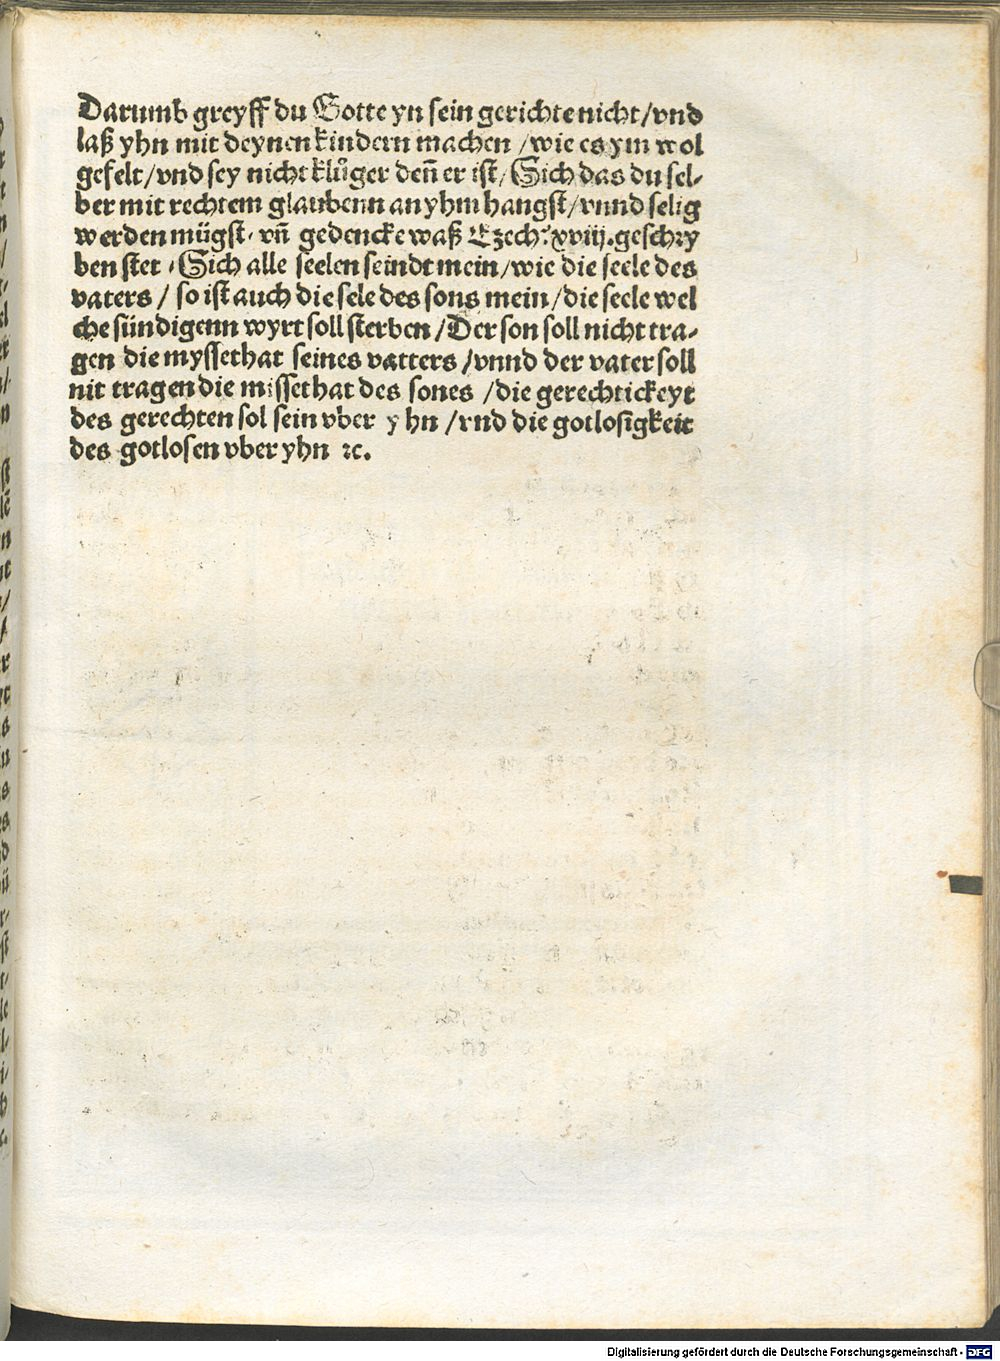 Darumb greyff du Gotte yn sein gerichte nicht/vnd
laß yhn mit deynen kindern machen /wie es ym wol
gefelt/vnd sey nicht klůger deñ er ist/ Sich das du sel-
ber mit rechtem glaubenn an yhm hangst/vnnd selig
werden mügst/ vñ gedencke waß Ezech. xviij. geschry
ben stet / Sich alle seelen seindt mein/wie die seele des
vaters / so ist auch die sele des sons mein/die seele wel
che sündigenn wyrt soll sterben /Der son soll nicht tra-
gen die myssethat seines vatters /vnnd der vater soll
nit tragen die missethat des sones /die gerechtickeyt
des gerechten sol sein vber yhn /vnd die gotlosigkeit
des gotlosen vber yhn ⁊c.
Digitalisierung gefördert durch die Deutsche Forschungsgemeinschaft - DFG